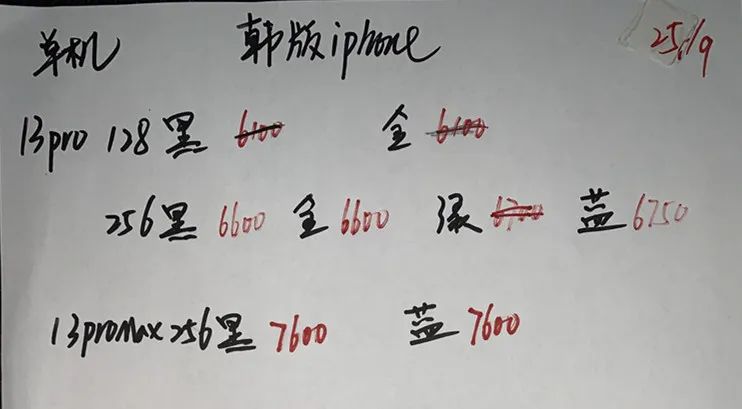 单机 韩版iphone 25/9
13pro 128黑 6100 金 6100
256黑 6600 金 6600 绿 6700 蓝 6750
13promax 256黑 7600 蓝 7600